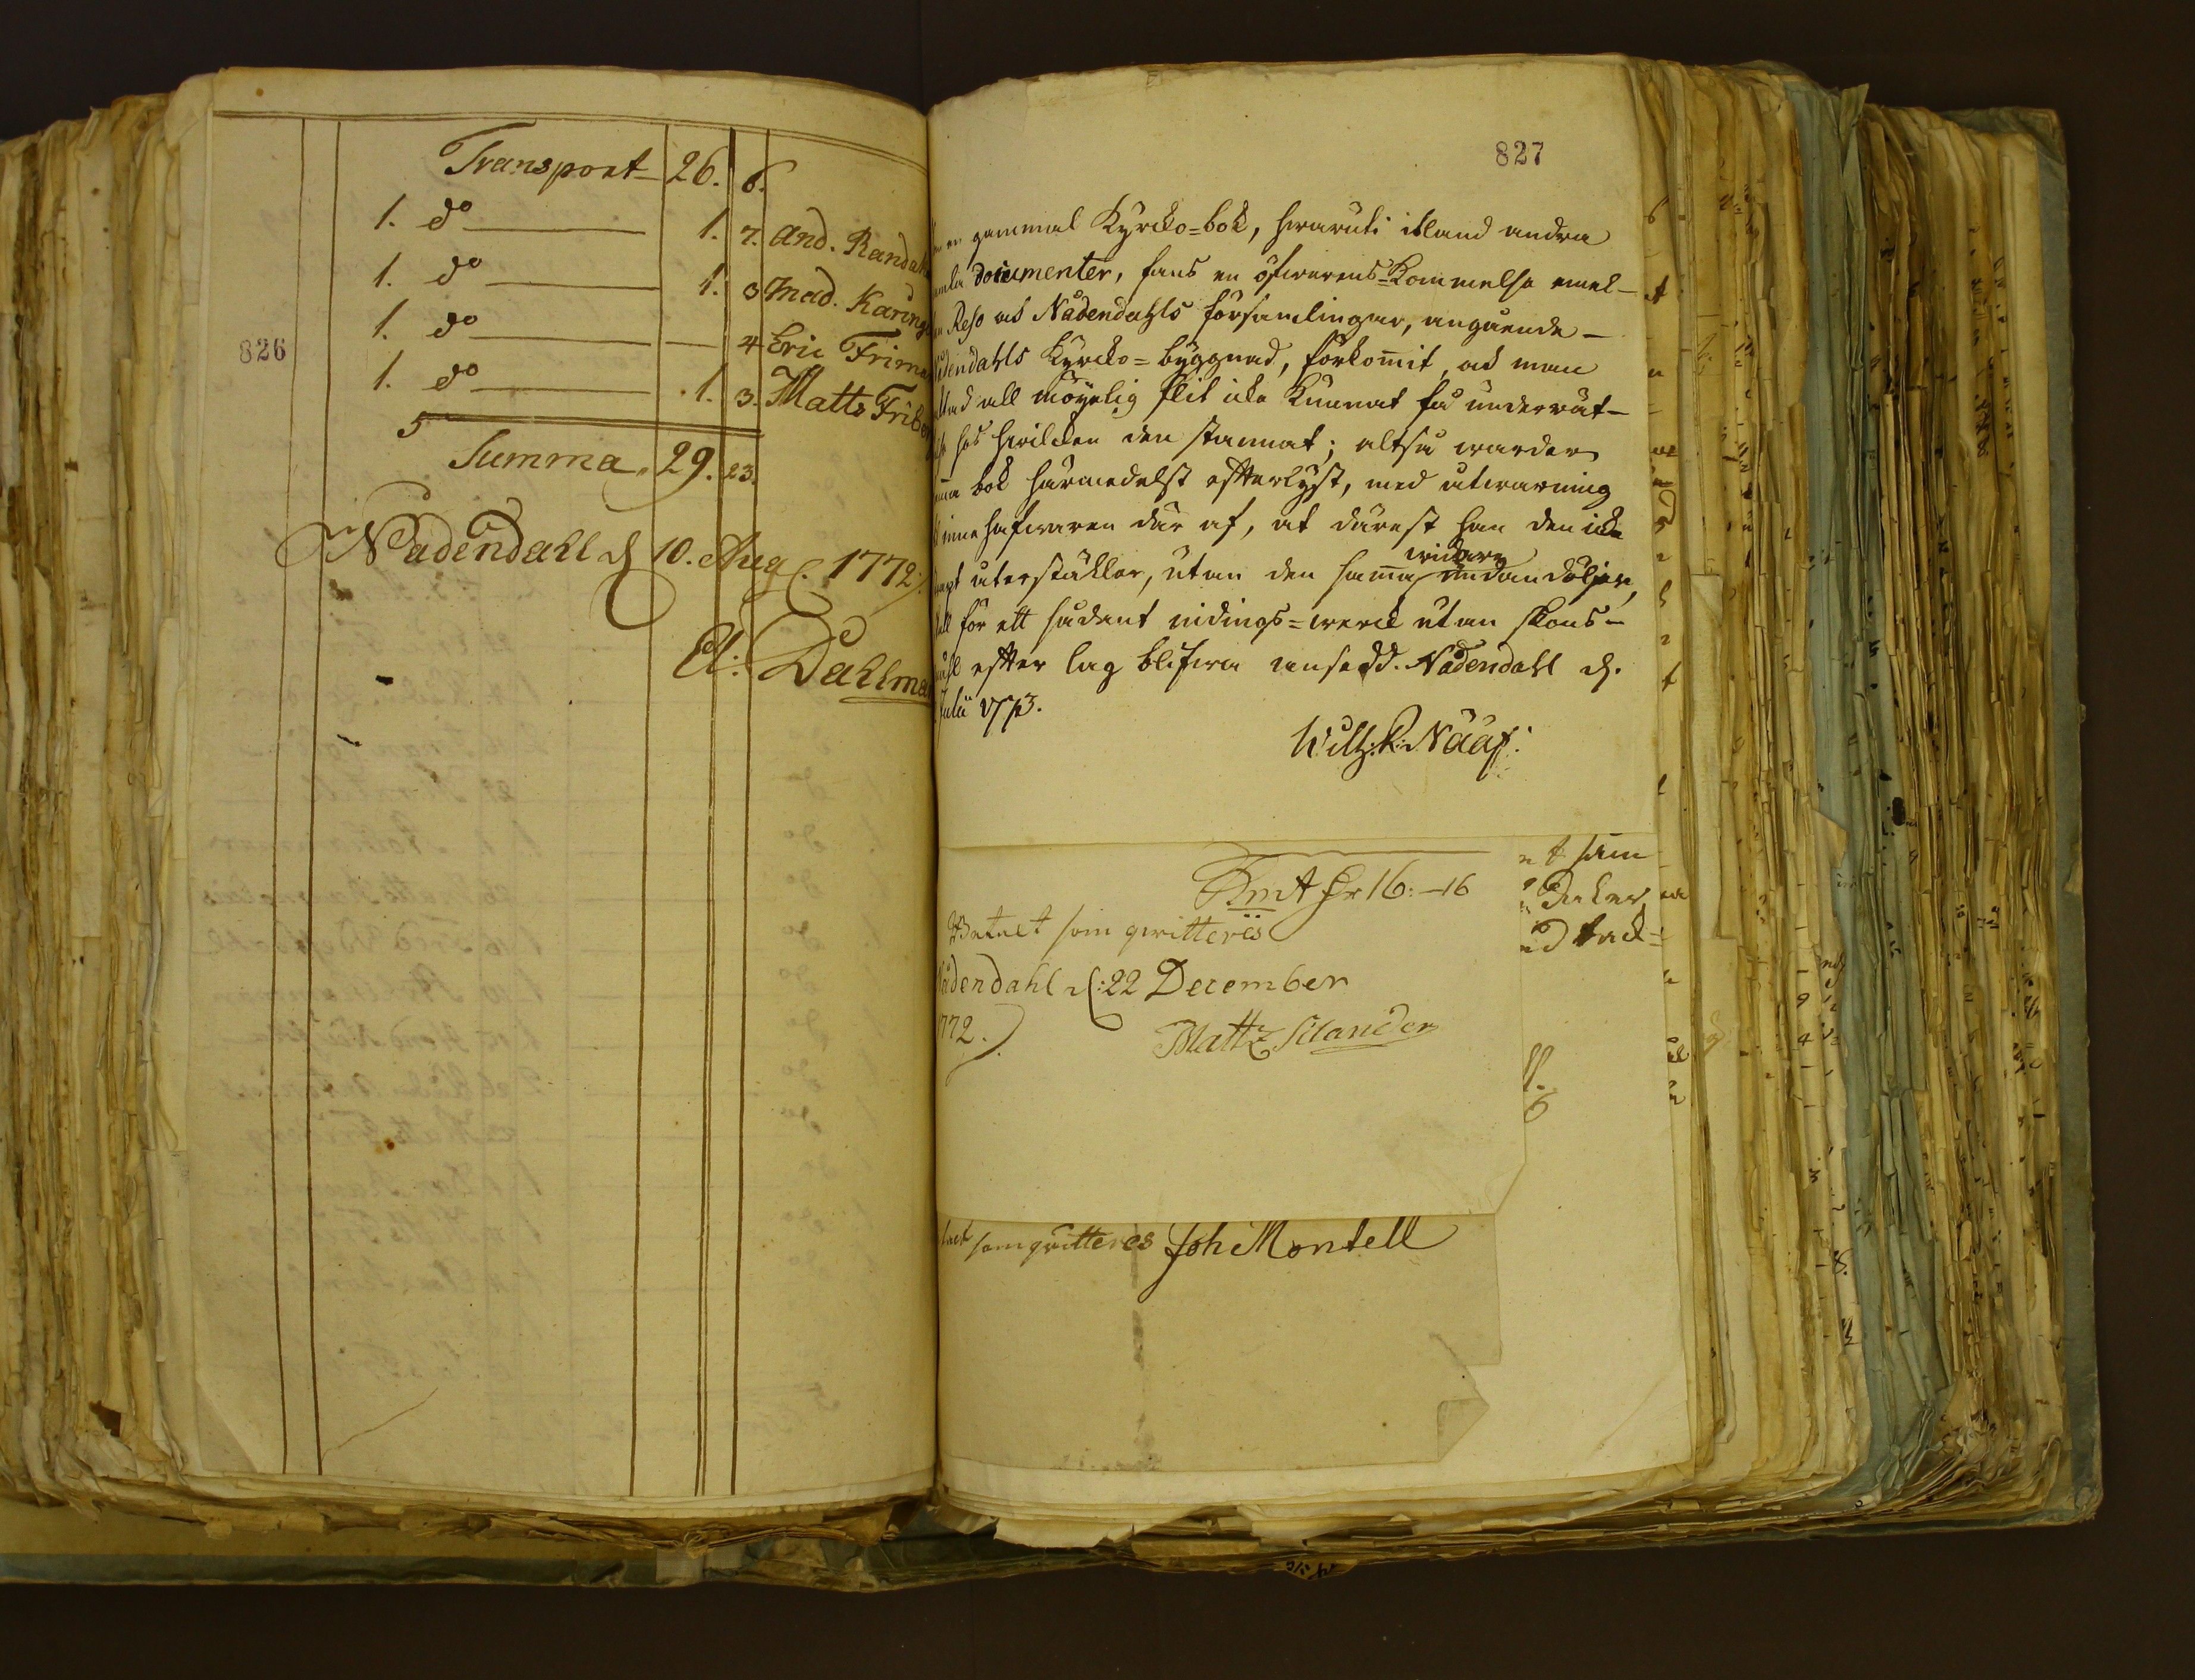 826
Transport 26. 6.
1. do 1. 7. And. Randa
1. do 1. 3 Mad. Karing
1. do 4 Eric Frima
1. do 1. 3. Matts Fribe
5
Summa 29. 23.
Nådendahl d 10. Aug. 1772.
El: Dahlma
827
en gammal Kyrcko=bok, hwaruti ibland andra
documenter, fans en öfwerens=Kommelse emel-
Reso och Nådendahls församlingar, angående
dendahls Kyrcko=byggnad, förkommit, och man
med all möyelig flit icke Kunnat få underrät-
hos hwilcken den stannat; altså warder
bok härmedelst efterlyst, med utwarning
innehafwaren där af, at därest han den icke
återställer, utan den samma widare undandöljer,
för ett sådant nidings=werck utan skons-
efter lag blifwa ansedd. Nådendahl d.
Julii 1773.
Wilh: R: Nääf:
Kmt Sr 16:-16
Betalt som qvitteres
Nådendahl d: 22 December
1772.
Matts Silander
som qvitteres Joh Montell